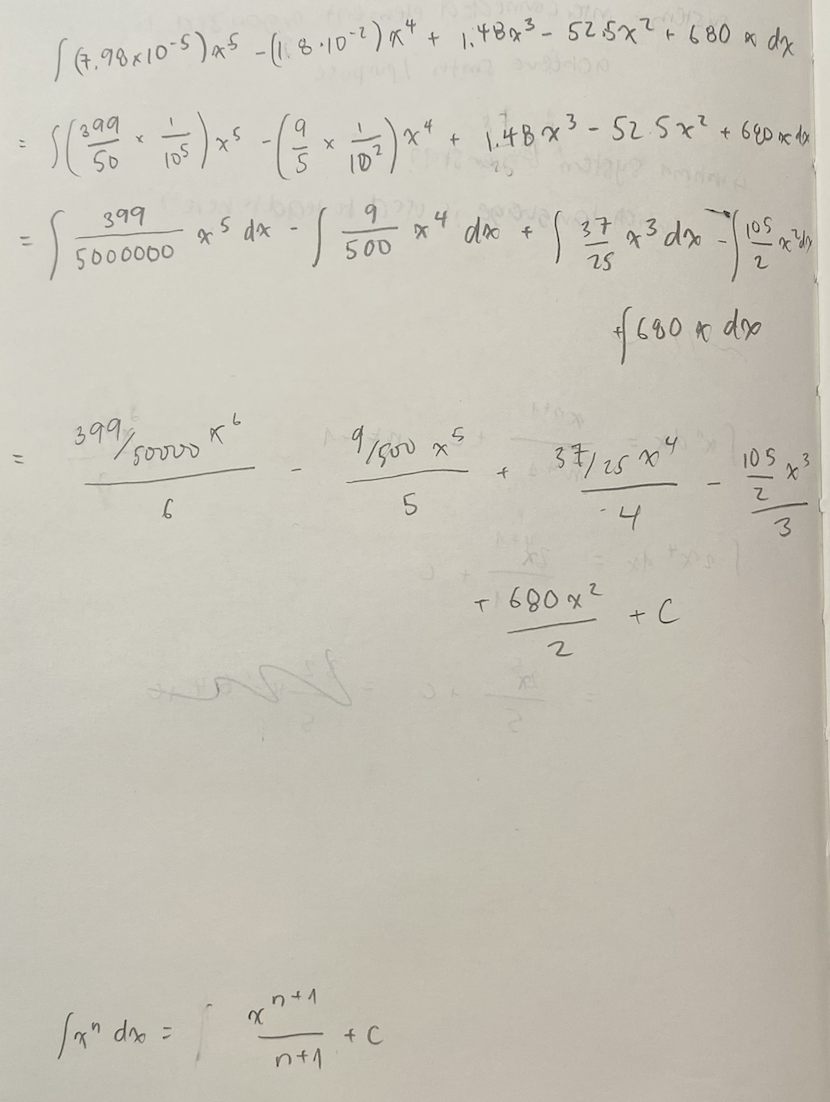 ∫(7.98×10⁻⁵)x⁵ − (1.8·10⁻²)x⁴ + 1.48x³ − 52.5x² + 680x dx
= ∫(399/50 × 1/10⁵)x⁵ − (9/5 × 1/10²)x⁴ + 1.48x³ − 52.5x² + 680x dx
25
= ∫ 399/5000000 x⁵ dx − ∫ 9/500 x⁴ dx + ∫ 37/25 x³ dx − ∫ 105/2 x² dx
+∫680x dx
= (399/50000 x⁶)/6 − (9/500 x⁵)/5 + (37/25 x⁴)/4 − (105/2 x³)/3
+ 680x²/2 + C
∫xⁿ dx = ∫ xⁿ⁺¹/(n+1) + C